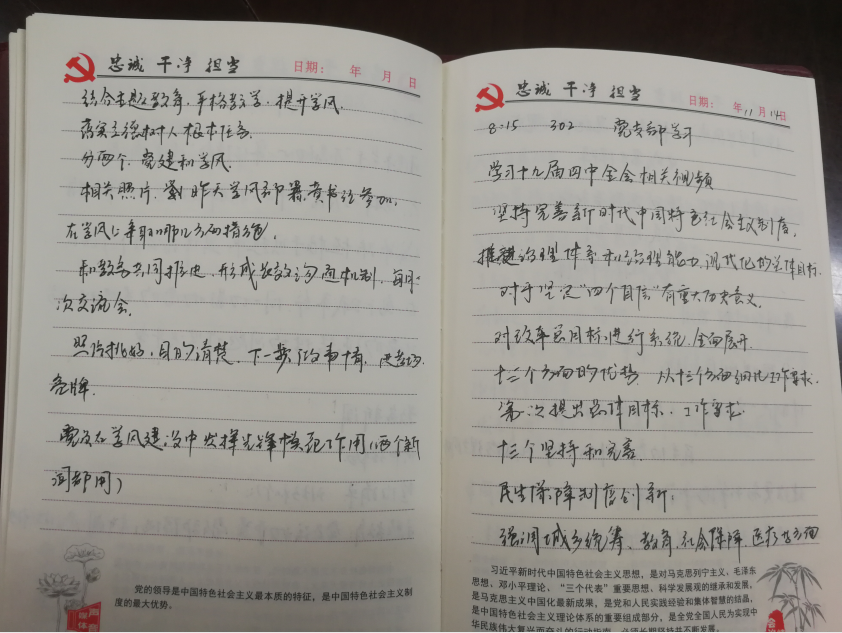 忠诚 干净 担当
日期： 年 月 日
结合主题教育，严格教学，提升学风。
落实立德树人根本任务
分两个，党建和学风
相关照片，昨天学风部署，黄书记参加，
在学风上采取哪几方面措施，
和教务共同推进，形成长效沟通机制，每周
次交流会。
照片挑好，目的清楚，下一步做事情，
亮牌
党员在学风建设中发挥先锋模范作用（两个新
闻都用）
党的领导是中国特色社会主义最本质的特征，是中国特色社会主义制
度的最大优势。
忠诚 干净 担当
日期： 年 11 月 14 日
8:15 302 党支部学习
学习十九届四中全会相关视频
坚持完善新时代中国特色社会主义制度，
推进治理体系和治理能力现代化的总体目标
对于坚定“四个自信”有重大历史意义。
对改革总目标进行系统、全面展开
十三个方面的优势 从十三个方面细化工作要求
第一次提出总体目标、工作要求
十三个坚持和完善
民生保障制度创新：
强调城乡统筹、教育、社会保障、医疗等方面
习近平新时代中国特色社会主义思想，是对马克思列宁主义、毛泽东
思想、邓小平理论、“三个代表”重要思想、科学发展观的继承和发展，
是马克思主义中国化最新成果，是党和人民实践经验和集体智慧的结晶，
是中国特色社会主义理论体系的重要组成部分，是全党全国人民为实现中
华民族伟大复兴而奋斗的行动指南，必须长期坚持并不断发展。